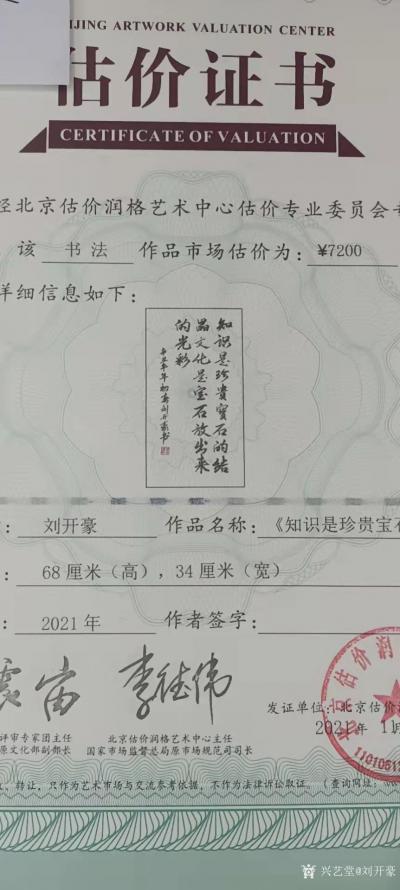 IJING ARTWORK VALUATION CENTER
估价证书
CERTIFICATE OF VALUATION
经北京估价润格艺术中心估价专业委员会
该 书法 作品市场估价为：¥7200
详细信息如下：
知识是珍贵宝石的结
晶文化是宝石放出来
的光彩
：刘开豪 作品名称：《知识是珍贵宝石
：68厘米（高），34厘米（宽）
：2021年 作者签字：
李德伟
评审专家团主任 北京估价润格艺术中心主任
原文化部副部长 国家市场监督总局原市场规范司司长
发证单位：北京估价
2021年 1月
北京估价润
1101051
，转让，只作为艺术市场与交流参考依据，不作为法律诉讼取证。（查询网址：
兴艺堂@刘开豪